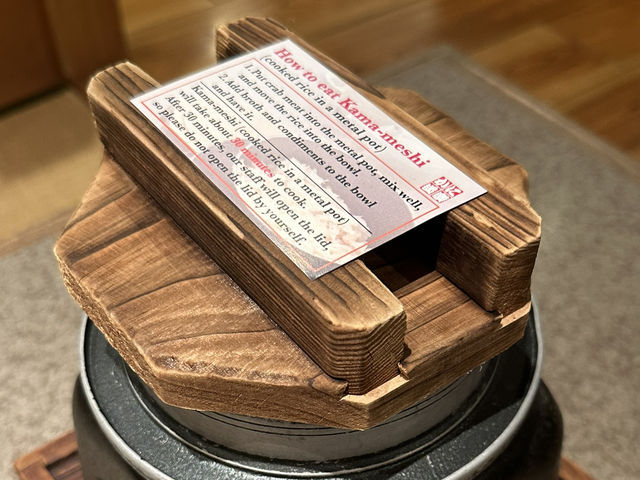 How to eat Kama-meshi
(cooked rice in a metal pot)
1. Put crab meat into the metal pot, mix well,
and move the rice into the bowl.
2. Add broth and condiments to the bowl
and have it.
Kama-meshi (cooked rice in a metal pot)
will take about 30 minutes to cook.
After 30 minutes, our staff will open the lid,
so please do not open the lid by yourself.